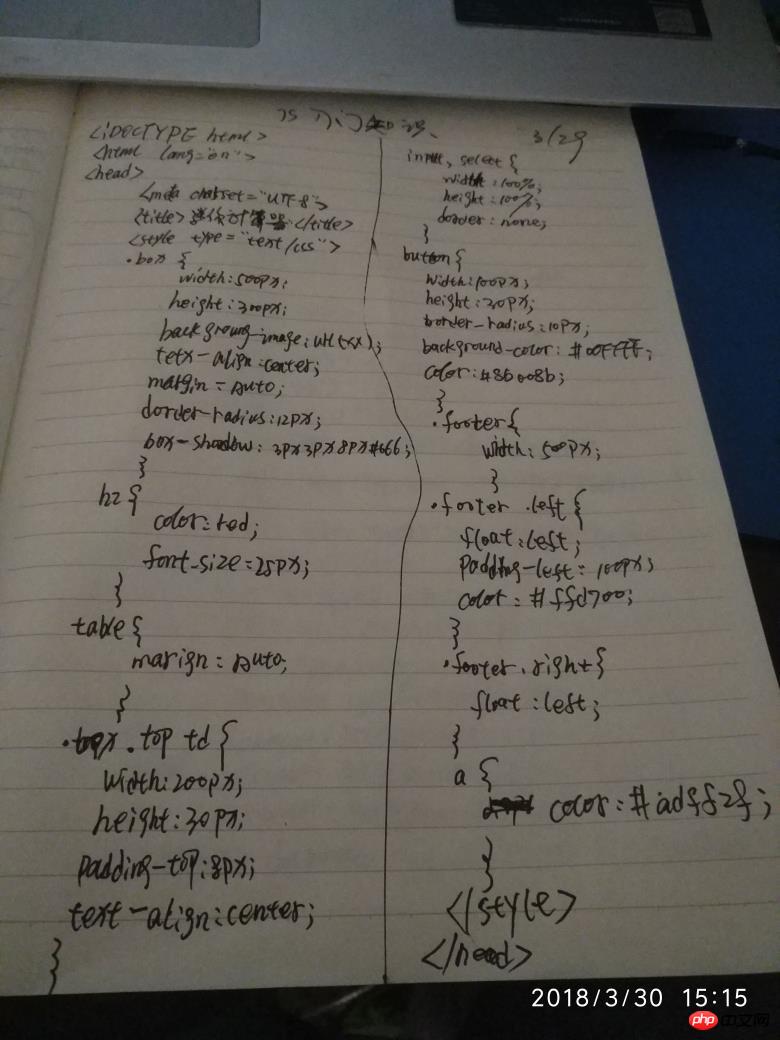 JS入门知识、
3/29
<!DOCTYPE html>
<html lang="en">
<head>
<meta charset="UTF-8">
<title>器</title>
<style type="text/css">
.box {
width:500px;
height:300px;
background-image:url(xx);
tetx-align:center;
margin=auto;
dorder-radius:12px;
box-shadow: 3px 3px 8px #666;
}
h2 {
color:red;
font-size=25px;
}
table{
marign=auto;
}
.box .top td {
width:200px;
height:30px;
padding-top:8px;
text-align:center;
}
input, select {
width:100%;
height:100%;
dorder:none;
}
button{
width:100px;
height:30px;
border-radius:10px;
background-color: #00FFFF;
color:#8b008b;
}
.footer{
width:500px;
}
.footer .left {
float:left;
padding-left:100px;
color:#ffd700;
}
.footer.right{
float:left;
}
a {
color:#adff2f;
}
}
</style>
</head>
2018/3/30 15:15
php 中文网